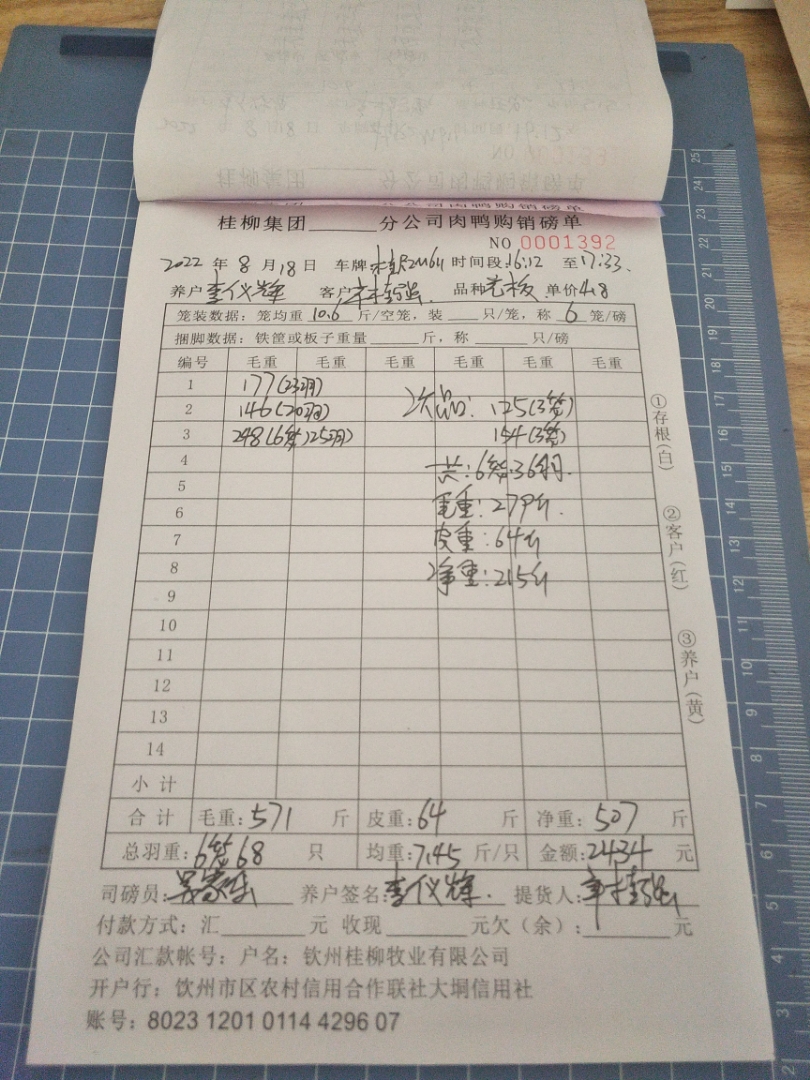 桂柳集团______分公司肉鸭购销磅单
NO 0001392
2022 年 8 月 18 日 车牌 时间段:16:12 至 17:33
养户 李仪辉 客户 品种 单价 4.8
笼装数据：笼均重 10.6 斤/空笼，装____只/笼，称 6 笼/磅
捆脚数据：铁筐或板子重量______斤，称______只/磅
编号 毛重 毛重 毛重 毛重 毛重 毛重
1 177(23羽)
2 146(20羽) 次品: 125(3笼)
3 248(6笼)25羽) 154(3笼)
4 共:6笼.36羽.
5 毛重:279斤.
6 皮重:64斤
7 净重:215斤
8
9
10
11
12
13
14
小计
合计 毛重:571 斤 皮重:64 斤 净重:507 斤
总羽重:6笼68 只 均重:7.45 斤/只 金额:2434 元
司磅员: 养户签名:李仪辉. 提货人:
付款方式：汇________元 收现________元欠（余）:________元
公司汇款帐号：户名：钦州桂柳牧业有限公司
开户行：钦州市区农村信用合作联社大垌信用社
账号：8023 1201 0114 4296 07
①存根(白)
②客户(红)
③养户(黄)